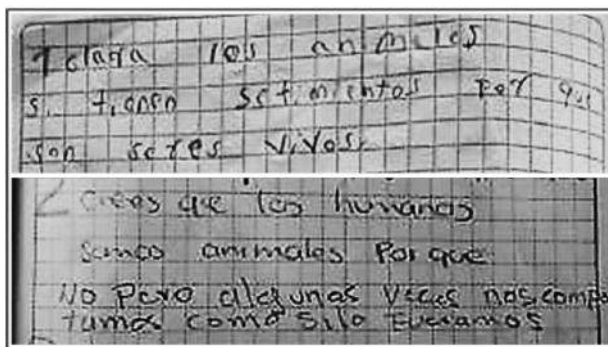 1 claria los animales
si tienen setimientos por que
son seres vivos.
2 crees que los humanos
somos animales Por que
No Pero algunas veces nos compo
tamos como silo Fueramos